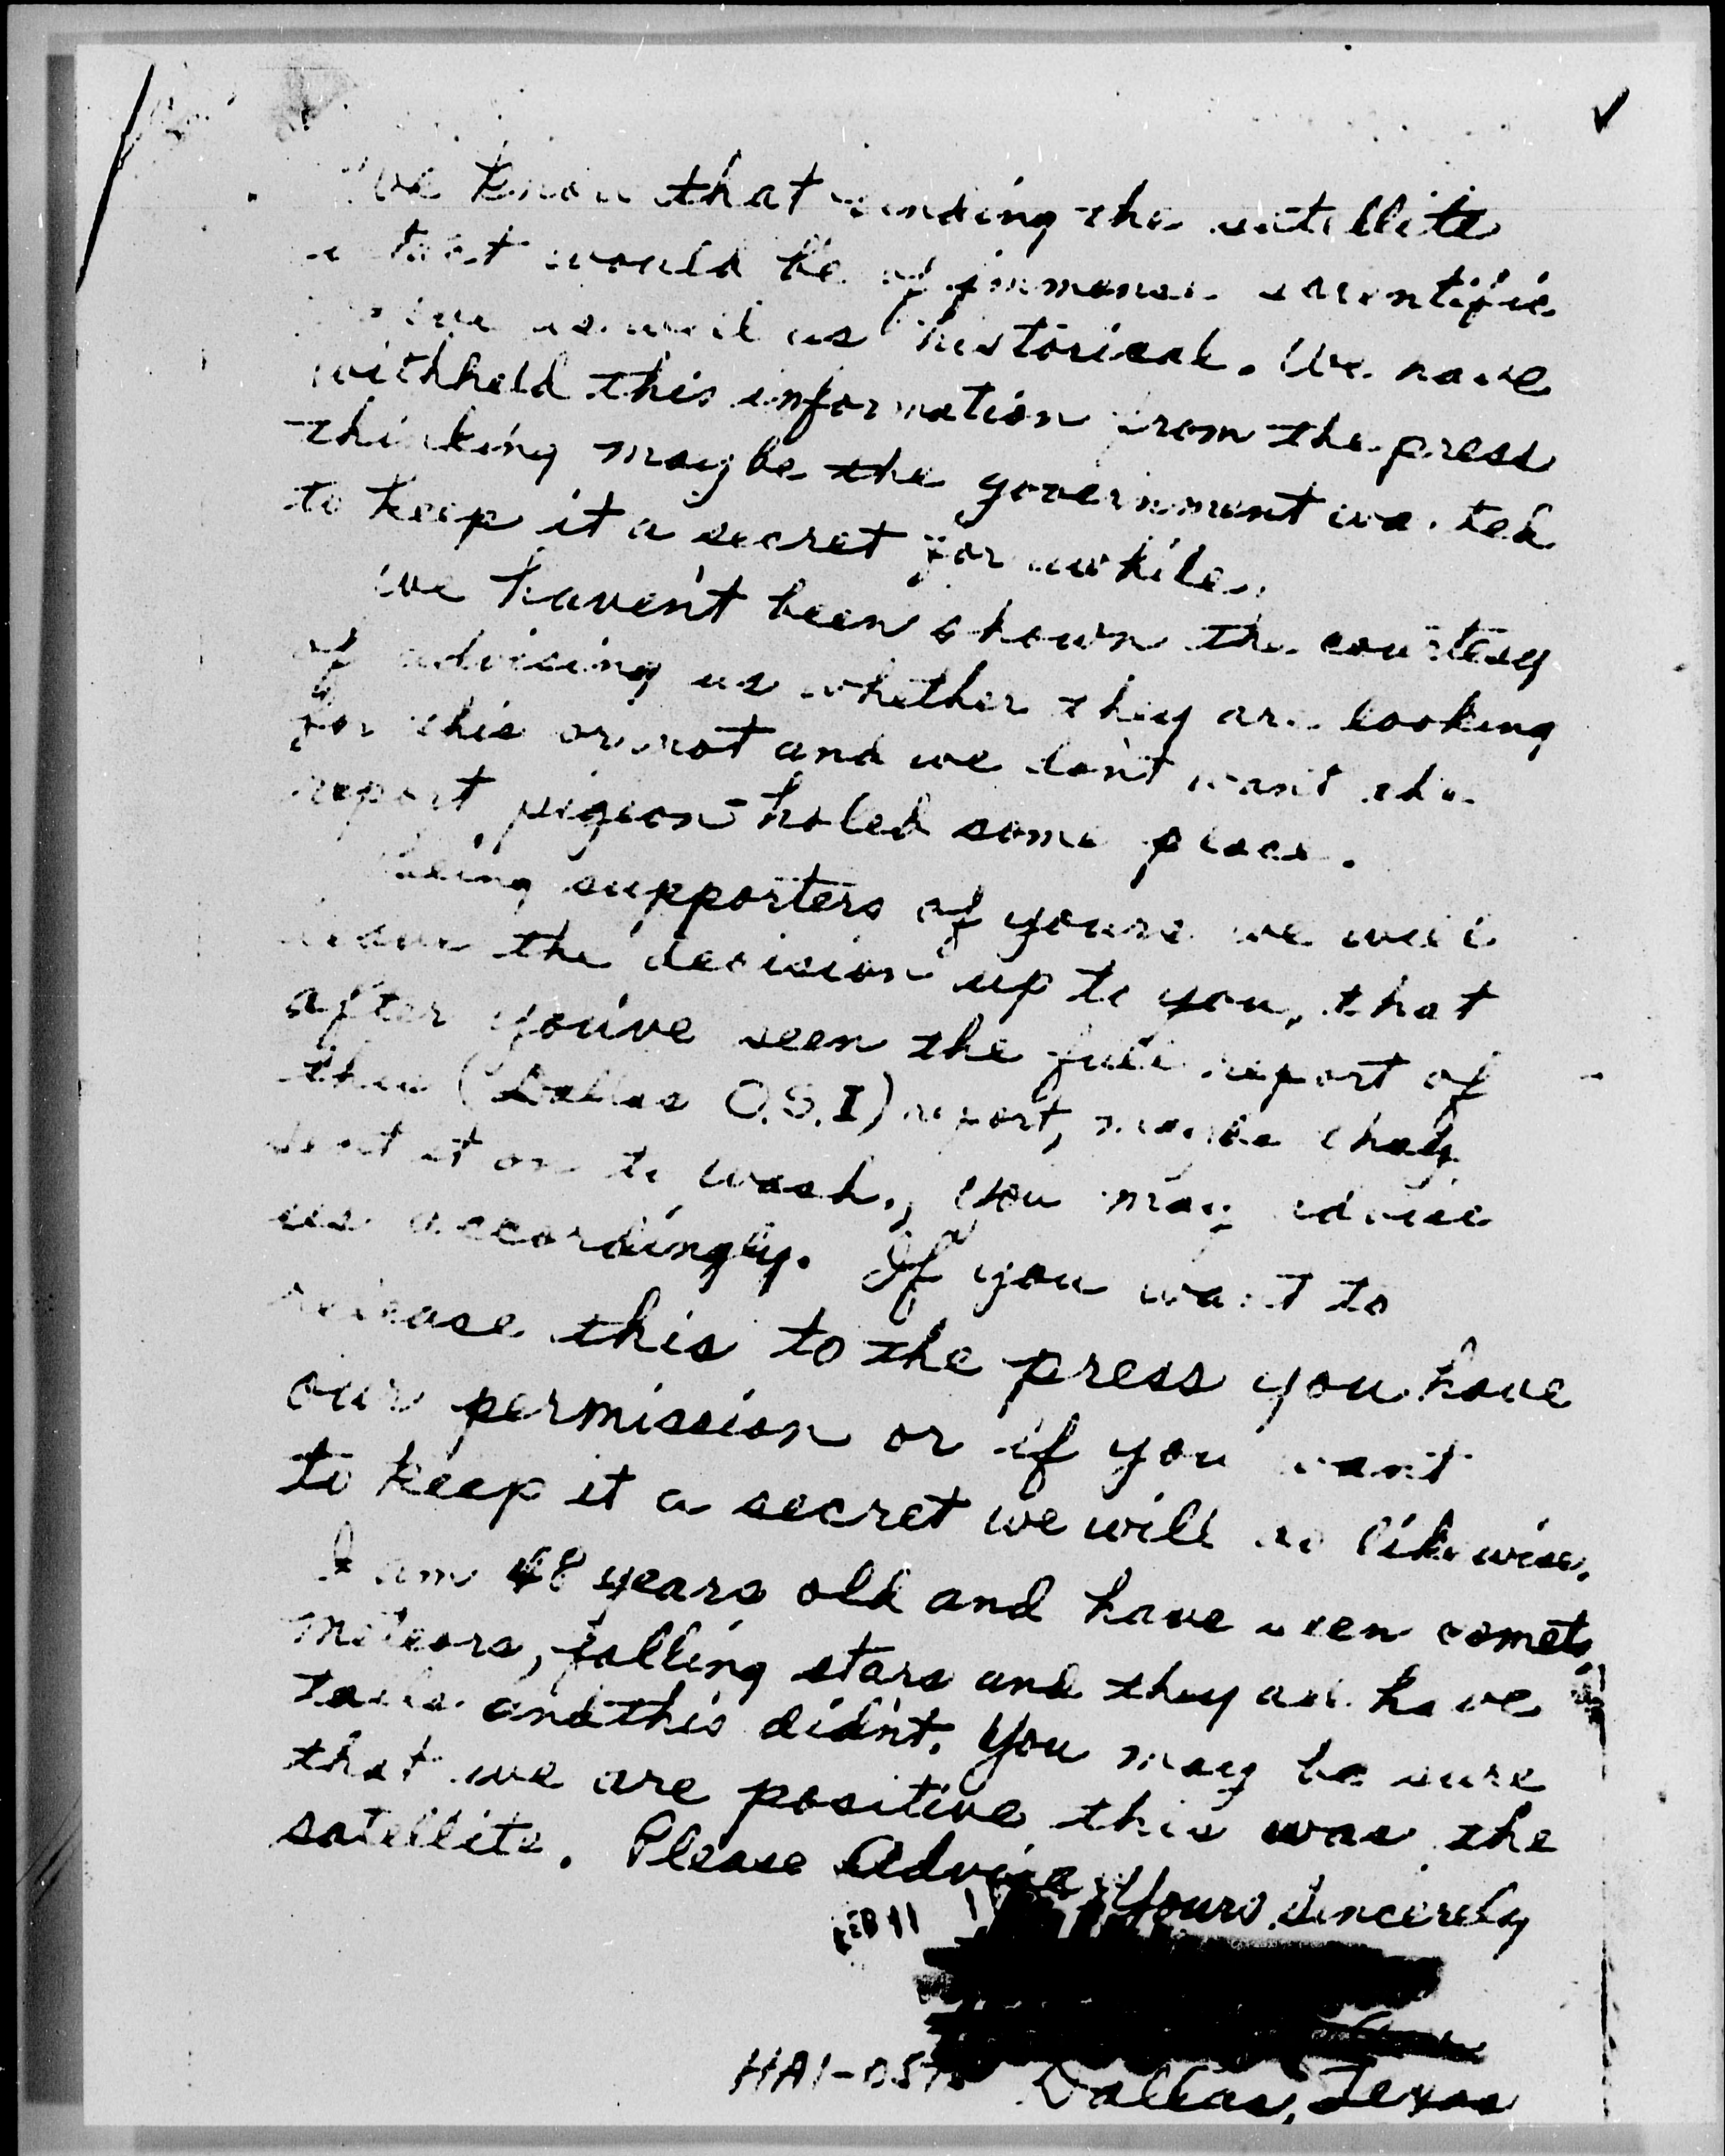 We know that finding the satellite
intact would be of immense scientific
value as well as historical. We have
withheld this information from the press
thinking maybe the government wanted
to keep it a secret for awhile.
We haven't been shown the courtesy
of advising us whether they are looking
for this or not and we don't want the
report pigeon-holed some place.
Being supporters of yours we will
leave the decision up to you, that
after you've seen the full report of
the (Dallas O.S.I) report, maybe they
sent it on to Wash., you may advise
us accordingly. If you want to
release this to the press you have
our permission or if you want
to keep it a secret we will do likewise.
I am 48 years old and have seen comets,
meteors, falling stars and they all have
tails and this didn't. You may be sure
that we are positive this was the
satellite. Please Advise. Yours Sincerely
FEB 11
HA1-
Dallas, Texas